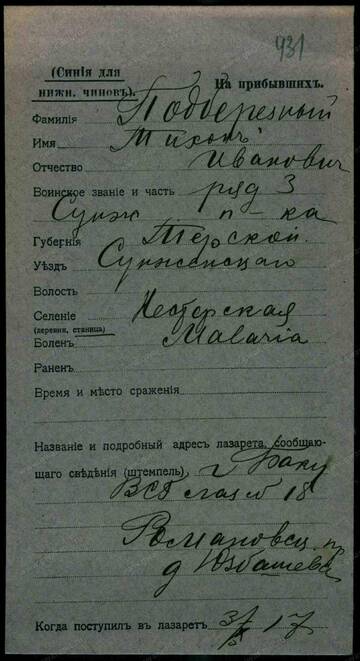 931
(Синія для
нижн. чиновъ).
На прибывшихъ.
Фамилія Подберезный
Имя Тихонъ
Отчество Иванович
Воинское званіе и часть ряд 3
Сунж п-ка
Губернія Терской
Уѣздъ Сунженскаго
Волость
Селеніе Нестерская
(деревня, станица)
Боленъ Malaria
Раненъ
Время и мѣсто сраженія
Названіе и подробный адресъ лазарета, сообщаю-
щаго свѣдѣнія (штемпель) г Баку
ВСГ 18
Романовск пр
д Юзбашева
Когда поступилъ въ лазаретъ 17